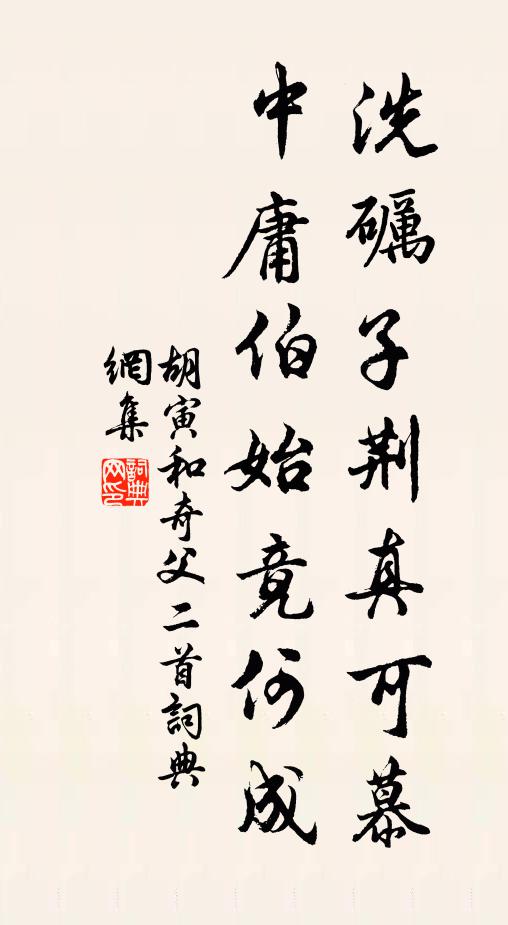 洗礪子荆真可慕
中庸伯始竟何成
胡寅和奇父二首詞典
網集
詞典
网印